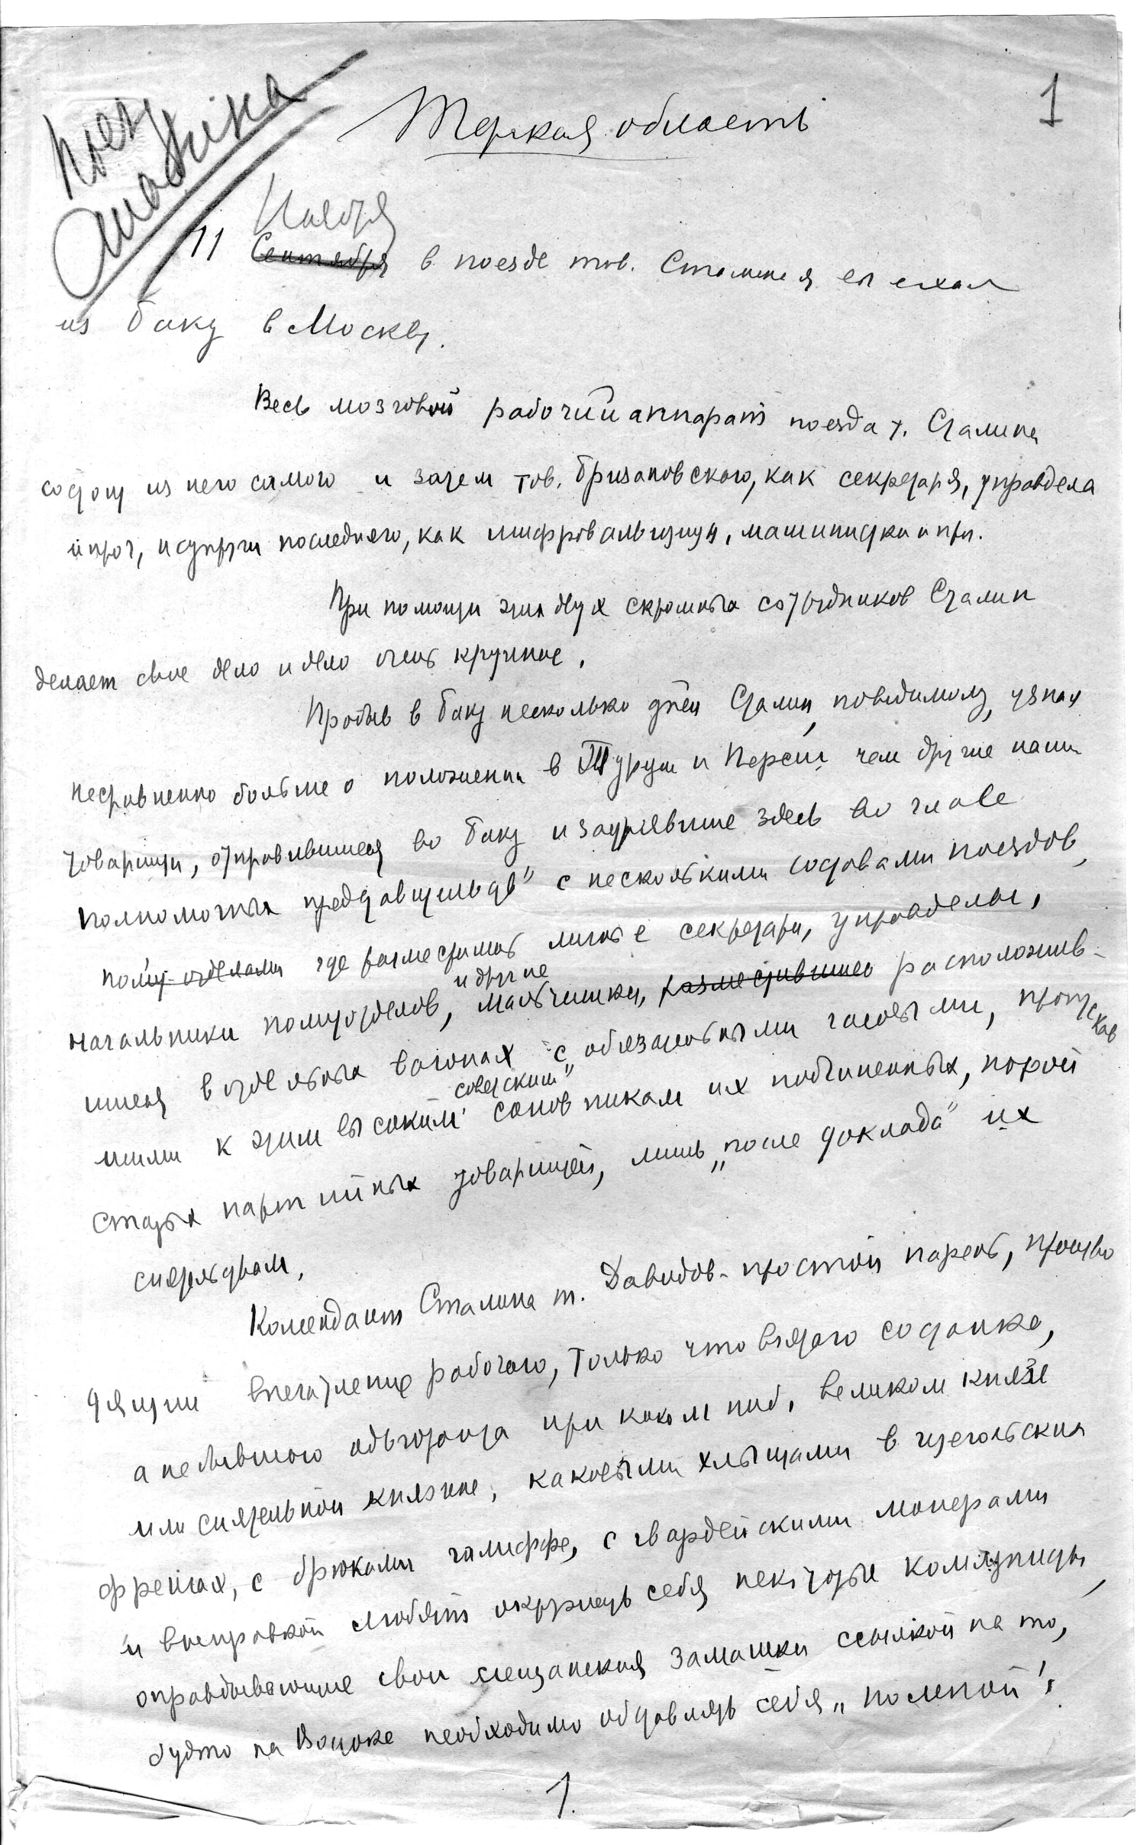 1
Поезд
Сталина
Терская область
Ноября
11 Сентября в поезде тов. Сталина я выехал
из Баку в Москву.
Весь мозговой рабочий аппарат поезда т. Сталина
состоит из него самого и затем тов. Бризановского, как секретаря, управдела
и проч, и супруги последнего, как шифровальщицы, машинистки и пр.
При помощи этих двух скромных сотрудников Сталин
делает свое дело и дело очень крупное.
Пробыв в Баку несколько дней Сталин, повидимому, узнал
несравненно больше о положении в Турции и Персии, чем другие наши
товарищи, отправившиеся во Баку и застрявшие здесь во главе
полномочных представительств" с несколькими составами поездов,
где разместились личные секретари, управделы,
и другие
начальники политотделов, мальчишки, разместившиеся расположив-
шиеся в отдельных вагонах с обязательными часовыми, пропускав
советским"
шими к этим высоким сановникам их подчиненных, порой
старых партийных товарищей, лишь „после доклада" их
секретарям.
Комендант Сталина т. Давидов - простой парень, произво
дящий впечатление рабочего, только что взятого со станка,
а не бывшого адъютанта при каком ниб. великом князе
или сиятельной княгине, каковыми хлыщами в щегольских
френчах, с брюками галиффе, с гвардейскими манерами
и выправкой любят окружать себя некоторые коммунисты,
оправдывающие свои мещанския замашки ссылкой на то,
будто на Востоке необходимо обставлять себя „помпой".
1.